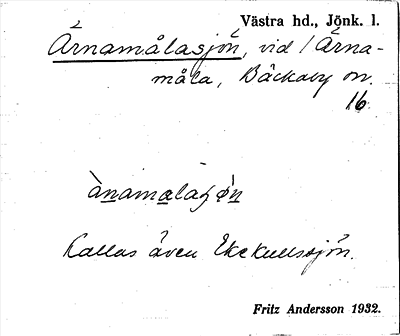 Västra hd., Jönk. l.
Ärnamålasjön, vid / Ärna-
måla, Bäckaby sn.
16.
Kallas även Ekekullssjön.
Fritz Andersson 1932.